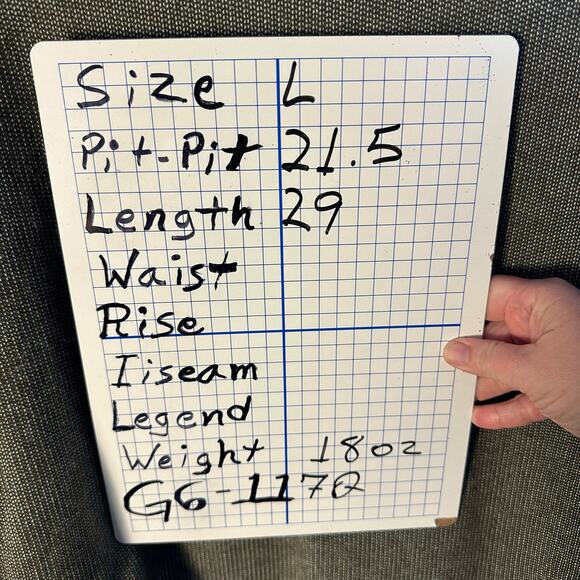 Size L
Pit-Pit 21.5
Length 29
Waist
Rise
Iiseam
Legend
Weight 18oz
G6-117Q